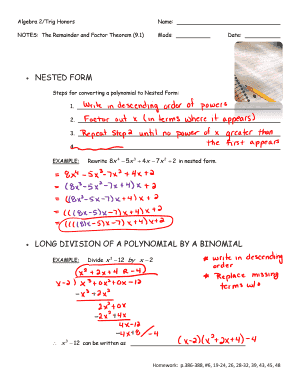 Algebra 2/Trig Honors Name:
NOTES: The Remainder and Factor Theorem (9.1) Mods Date:
• NESTED FORM
Steps for converting a polynomial to Nested Form:
1. Write in descending order of powers
2. Factor out x (in terms where it appears)
3. Repeat Step 2 until no power of x greater than
4. the first appears
EXAMPLE: Rewrite 8x⁴ − 5x³ + 4x − 7x² − 2 in nested form.
= 8x⁴ − 5x³ − 7x² + 4x + 2
= (8x³ − 5x² − 7x + 4)x + 2
= ((8x² − 5x − 7)x + 4)x + 2
= (((8x − 5)x − 7)x + 4)x + 2
= ((((8x − 5)x − 7)x + 4)x + 2
• LONG DIVISION OF A POLYNOMIAL BY A BINOMIAL
EXAMPLE: Divide x³ − 12 by x − 2
* write in descending
order
* Replace missing
terms w/ 0
x² + 2x + 4 R −4
x−2 ) x³ + 0x² + 0x − 12
−x³ + 2x²
2x² + 0x
−2x² + 4x
4x − 12
−4x + 8 / −4
∴ x³ − 12 can be written as (x−2)(x² + 2x + 4) − 4
Homework: p.386-388, #6, 19-24, 26, 28-32, 39, 43, 45, 48